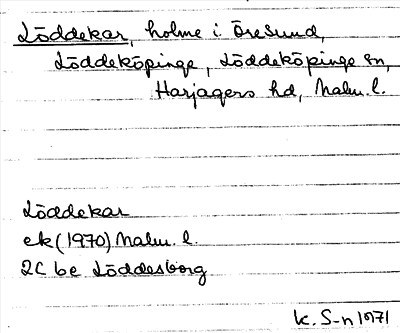 Löddekar, holme i Öresund,
Löddeköpinge, Löddeköpinge sn,
Harjagers hd, Malm. l.
Löddekar
ek (1970) Malm. l.
2C be Löddesborg
K. S-n 1971